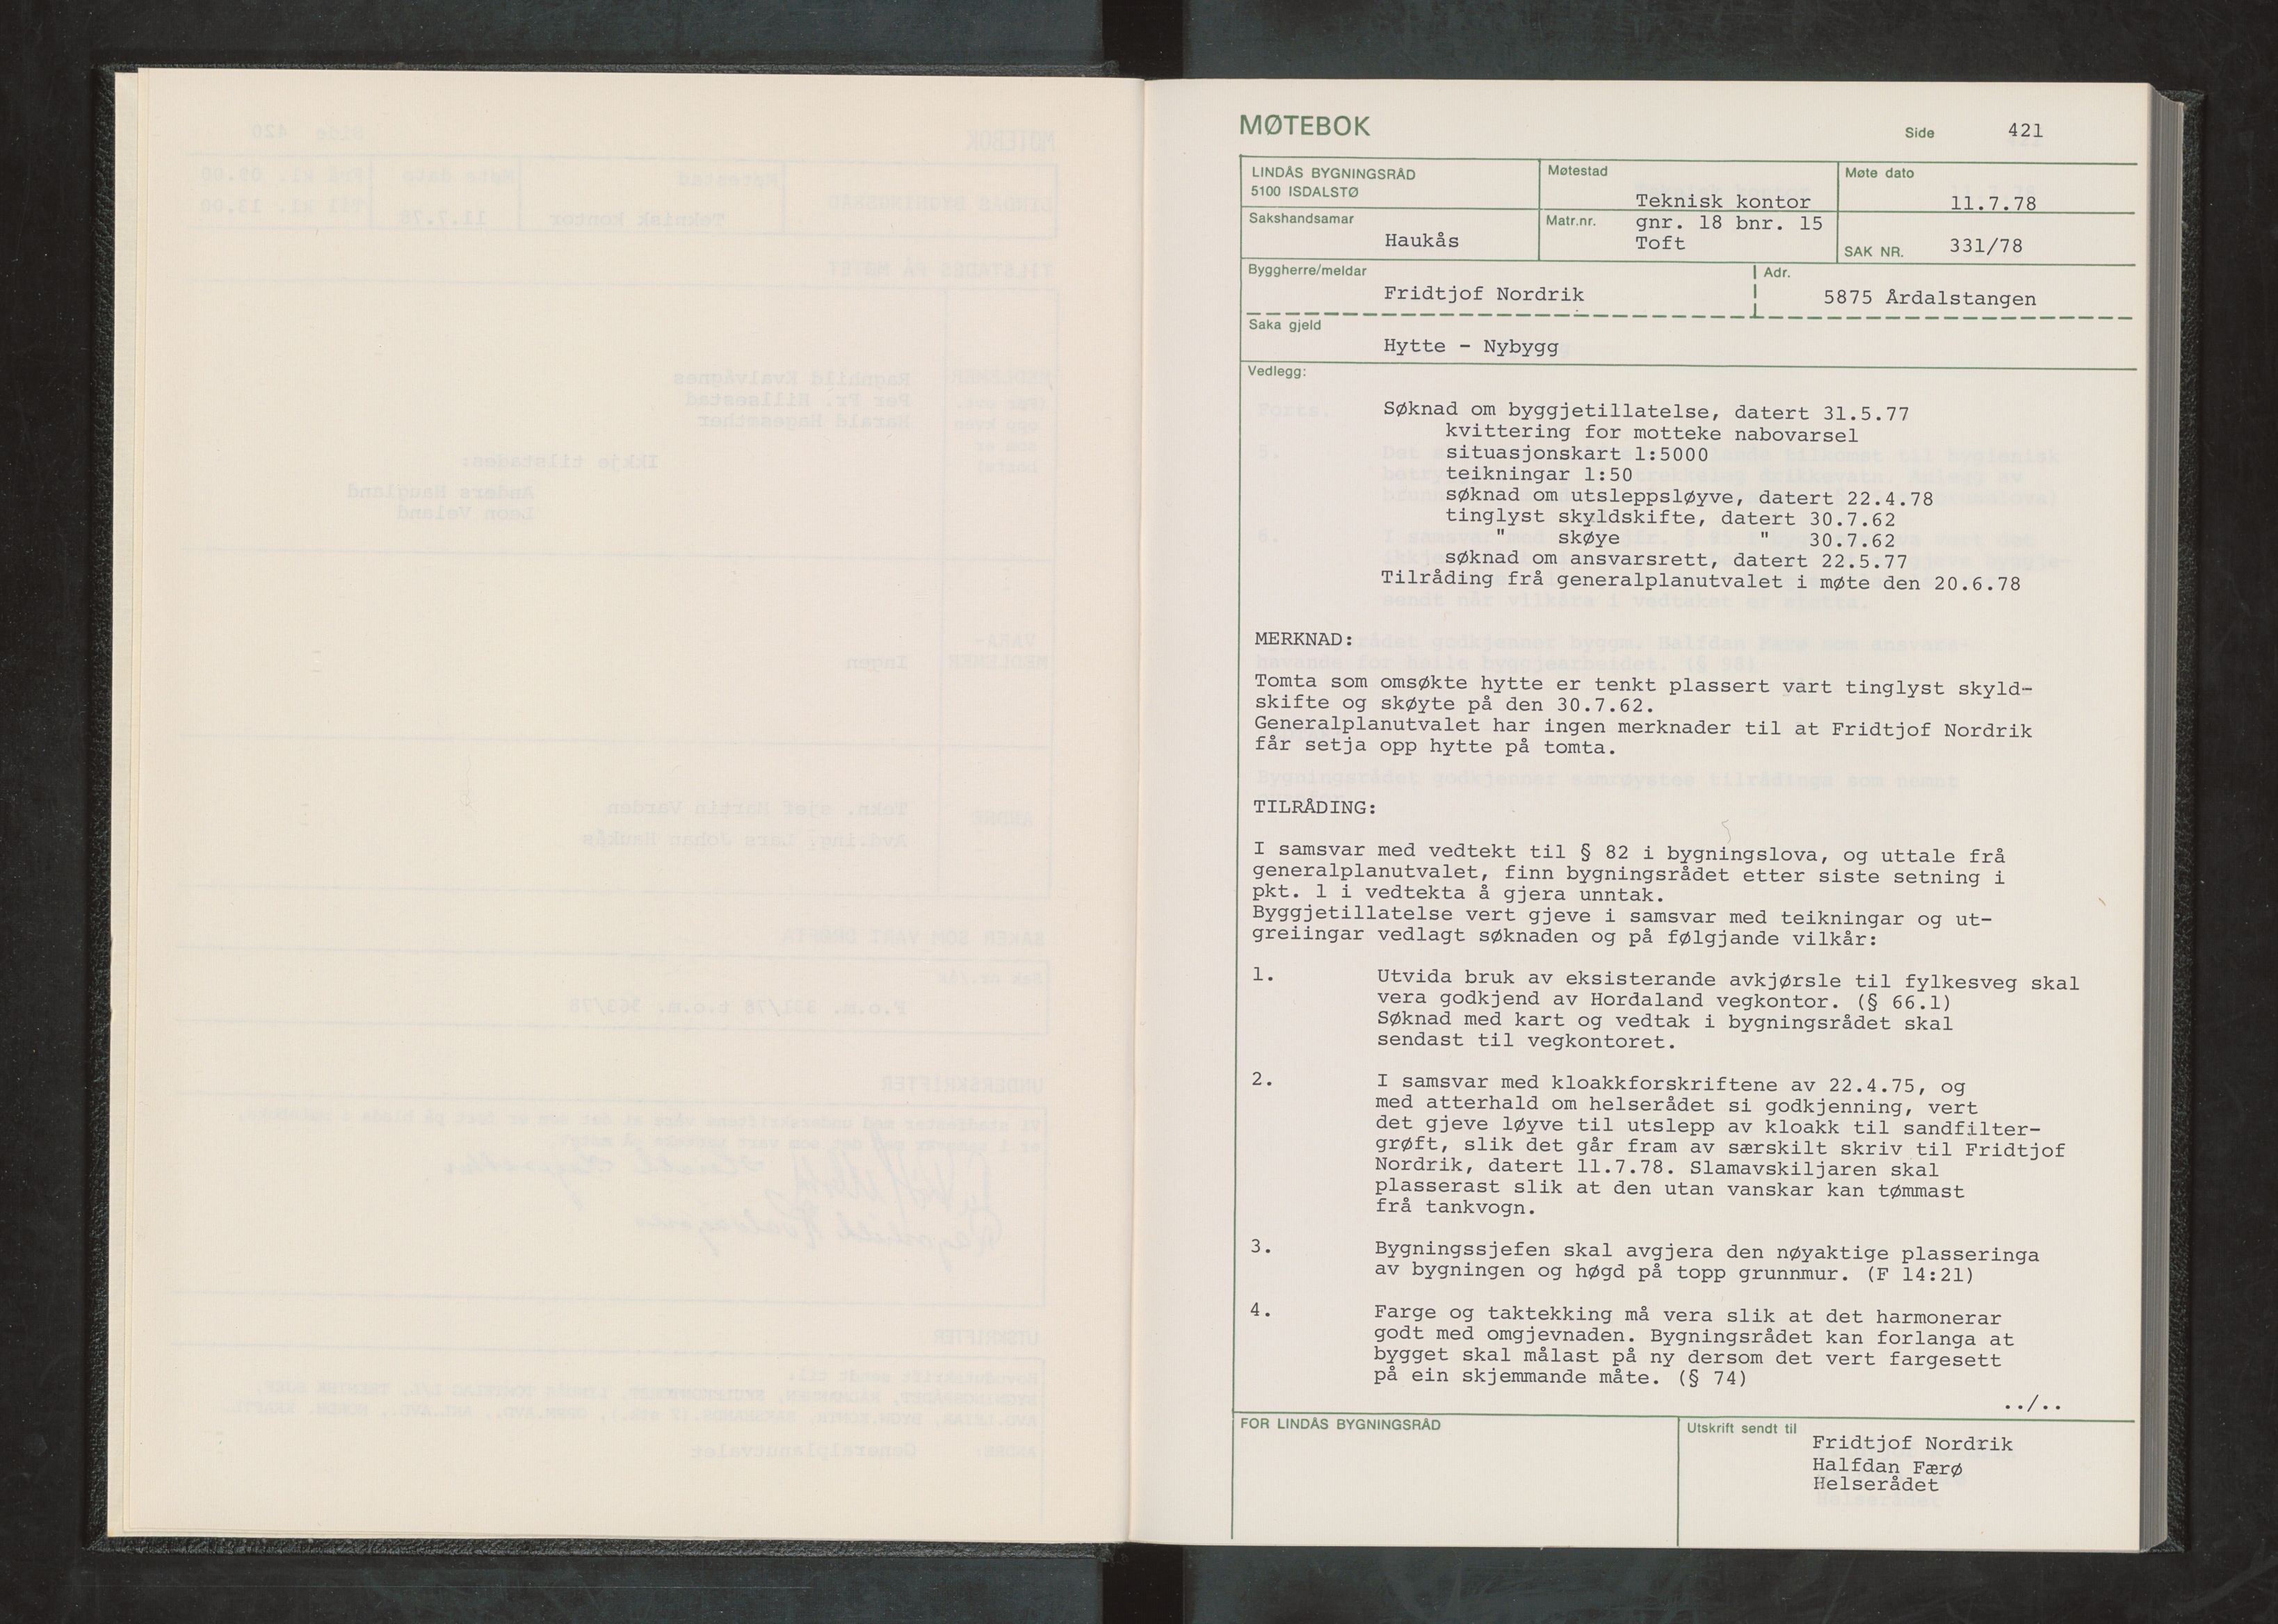 MØTEBOK
Side 421
LINDÅS BYGNINGSRÅD
5100 ISDALSTØ
Møtestad
Teknisk kontor
Møte dato
11.7.78
Sakshandsamar
Haukås
Matr.nr.
gnr. 18 bnr. 15
Toft
SAK NR. 331/78
Byggherre/meldar
Fridtjof Nordrik
Adr.
5875 Årdalstangen
Saka gjeld
Hytte - Nybygg
Vedlegg:
Søknad om byggjetillatelse, datert 31.5.77
kvittering for motteke nabovarsel
situasjonskart 1:5000
teikningar 1:50
søknad om utsleppsløyve, datert 22.4.78
tinglyst skyldskifte, datert 30.7.62
" skøye " 30.7.62
søknad om ansvarsrett, datert 22.5.77
Tilråding frå generalplanutvalet i møte den 20.6.78
MERKNAD:
Tomta som omsøkte hytte er tenkt plassert vart tinglyst skyld-
skifte og skøyte på den 30.7.62.
Generalplanutvalet har ingen merknader til at Fridtjof Nordrik
får setja opp hytte på tomta.
TILRÅDING:
I samsvar med vedtekt til § 82 i bygningslova, og uttale frå
generalplanutvalet, finn bygningsrådet etter siste setning i
pkt. 1 i vedtekta å gjera unntak.
Byggjetillatelse vert gjeve i samsvar med teikningar og ut-
greiingar vedlagt søknaden og på følgjande vilkår:
1. Utvida bruk av eksisterande avkjørsle til fylkesveg skal
vera godkjend av Hordaland vegkontor. (§ 66.1)
Søknad med kart og vedtak i bygningsrådet skal
sendast til vegkontoret.
2. I samsvar med kloakkforskriftene av 22.4.75, og
med atterhald om helserådet si godkjenning, vert
det gjeve løyve til utslepp av kloakk til sandfilter-
grøft, slik det går fram av særskilt skriv til Fridtjof
Nordrik, datert 11.7.78. Slamavskiljaren skal
plasserast slik at den utan vanskar kan tømmast
frå tankvogn.
3. Bygningssjefen skal avgjera den nøyaktige plasseringa
av bygningen og høgd på topp grunnmur. (F 14:21)
4. Farge og taktekking må vera slik at det harmonerar
godt med omgjevnaden. Bygningsrådet kan forlanga at
bygget skal målast på ny dersom det vert fargesett
på ein skjemmande måte. (§ 74)
../..
FOR LINDÅS BYGNINGSRÅD
Utskrift sendt til
Fridtjof Nordrik
Halfdan Færø
Helserådet